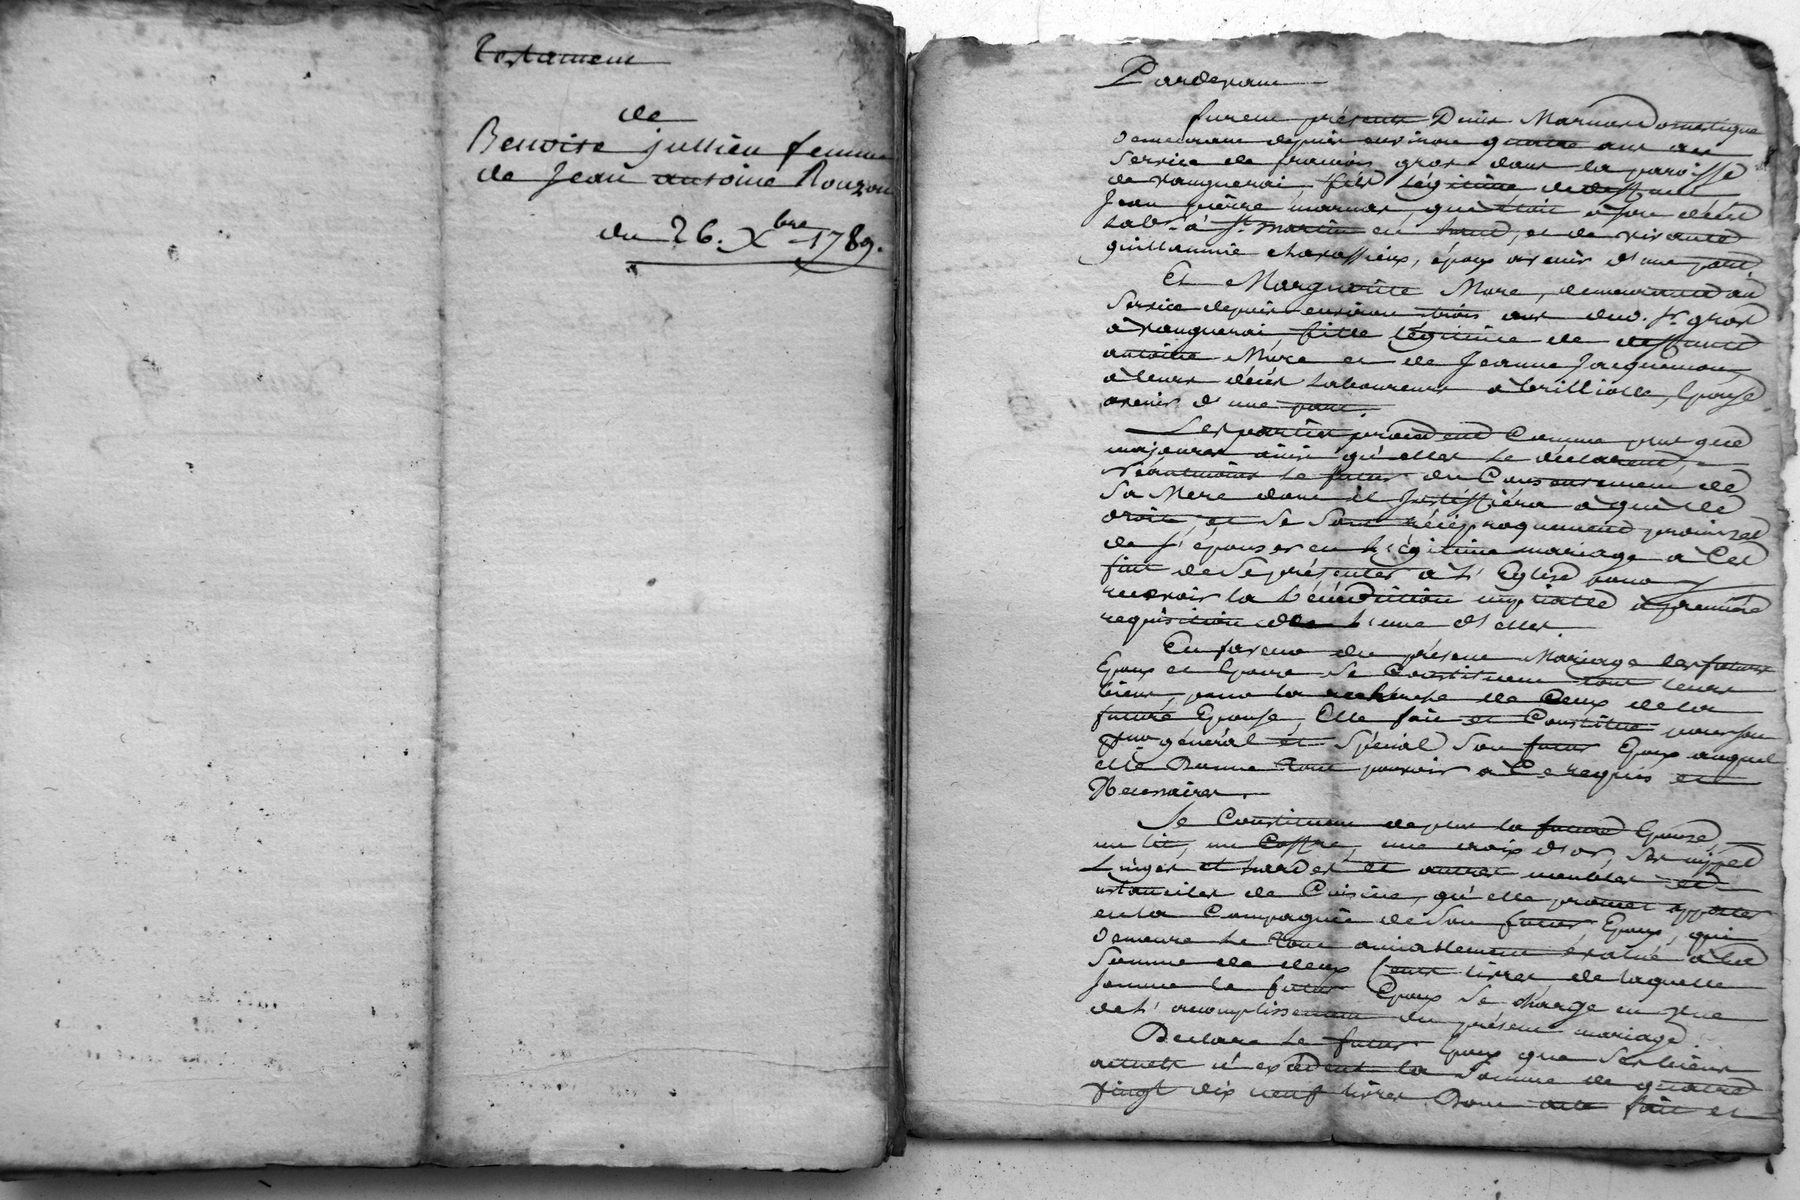 Testament
de
Benoite jullien femme
de Jean antoine Rouzon
du 26. Xbre 1789.
Pardevant
furent présents Denis Marnas Domestique
demeurant depuis environ quatre ans au
service de francois gros dans la paroisse
de vaugnerai, fils légitime de deffunt
Jean pierre marnas, quand vivoit
Lab. à St. martin en haut, et de vivante
guillaumie charassieux, époux avenir d'une part,
Et Marguerite More, demeurante au
service depuis environ trois ans dud. Sr. gros
à vaugnerai, fille légitime de deffunts
antoine More et de Jeanne Jacquemon
à leurs décès Laboureurs à brillialle, Epouse
avenir d'une part.
Les parties procédent Comme que
majeures ainsi qu'elles le déclarent,
néantmoins le futur du Consentement de
Sa Mere dont il Justiffiera à qui de
droit, et se sont réciproquement promises
de s'épouser en légitime mariage a Cet
fait de se présenter à L'Eglise pour
recevoir la bénédiction nuptialle à premiere
requisition de l'une d'elles.
En faveur du présent Mariage les futurs
Epoux et Epouse se Constituent tout leurs
biens, pour la recherche de Ceux de la
future Epouse, Elle fait et Constitue pour son
général et Spécial Son futur Epoux auquel
elle Donne tout pouvoir a Ce requis et
Necessaires.
Se Constitue de plus la future Epouse,
un lit, un Coffre, une croix d'or, Ses nippes
Linges et hardes et autres meubles et
ustanciles de Cuisine, qu'elle promet apporter
en la Compagnie de Son futur Epoux, qui
demeure le tout amiablement évalué à la
Somme de deux Cents livres de laquelle
somme le futur Epoux se charge en vue
de L'accomplissement du présent mariage.
Declare le futur Epoux que Ses biens
actuels n'excédent la Somme de quatre
vingt dix neuf livres Dont acte fait et